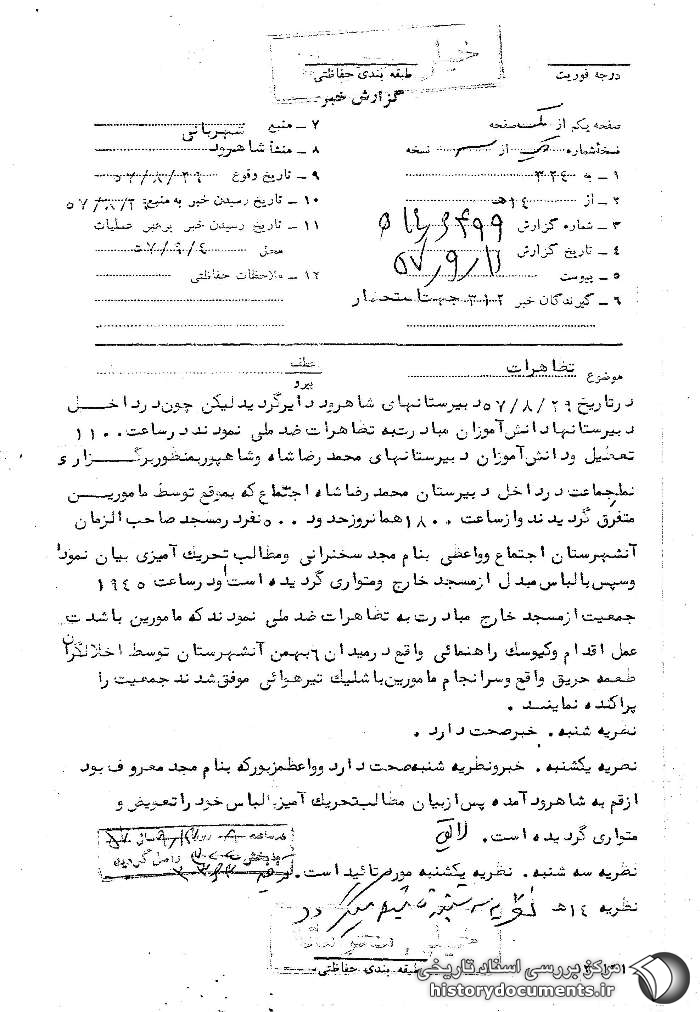 خیلی
درجه فوریت
طبقه بندی حفاظتی
گزارش خبر
صفحه یکم از یک صفحه
نسخه شماره از نسخه
۱ ـ به ۳۲۴
۲ ـ از ۱۴هـ
۳ ـ شماره گزارش
۴ ـ تاریخ گزارش ۵۷/۹/۱۱
۵ ـ پیوست
۶ ـ گیرندگان خبر ۳۱۲ جهت استحضار
۷ ـ منبع شهربانی
۸ ـ منشأ شاهرود
۹ ـ تاریخ وقوع ۵۷/۸/۲۹
۱۰ ـ تاریخ رسیدن خبر به منبع ۵۷/۸/۲۹
۱۱ ـ تاریخ رسیدن خبر برهبر عملیات
محل ۵۷/۹/۴
۱۲ ـ ملاحظات حفاظتی
موضوع تظاهرات
عطف
پیرو
در تاریخ ۵۷/۸/۲۹ دبیرستانهای شاهرود دایر گردید لیکن چون در داخل
دبیرستانها دانش آموزان مبادرت به تظاهرات ضد ملی نمودند در ساعت ۱۱۰۰
تعطیل و دانش آموزان دبیرستانهای محمد رضا شاه و شاهپور بمنظور برگزاری
نماز جماعت در داخل دبیرستان محمد رضا شاه اجتماع که بموقع توسط مامورین
متفرق گردیدند و از ساعت ۱۸۰۰ همانروز حدود ۵۰۰ نفر در مسجد صاحب الزمان
آنشهرستان اجتماع و واعظی بنام مجد سخنرانی و مطالب تحریک آمیزی بیان نمود
و سپس با لباس مبدل از مسجد خارج و متواری گردیده است و در ساعت ۱۹۴۵
جمعیت از مسجد خارج مبادرت به تظاهرات ضد ملی نمودند که مامورین با شدت
عمل اقدام و کیوسک راهنمائی واقع در میدان ۶ بهمن آنشهرستان توسط اخلالگران
طعمه حریق واقع و سرانجام مامورین با شلیک تیر هوائی موفق شدند جمعیت را
پراکنده نمایند.
نظریه شنبه. خبر صحت دارد.
نظریه یکشنبه. خبر و نظریه شنبه صحت دارد و واعظ مزبور که بنام مجد معروف بود
از قم به شاهرود آمده پس از بیان مطالب تحریک آمیز لباس خود را تعویض و
متواری گردیده است.
نظریه سه شنبه. نظریه یکشنبه مورد تائید است.
نظریه ۱۴هـ
طبقه بندی حفاظتی
مرکز بررسی اسناد تاریخی
historydocuments.ir